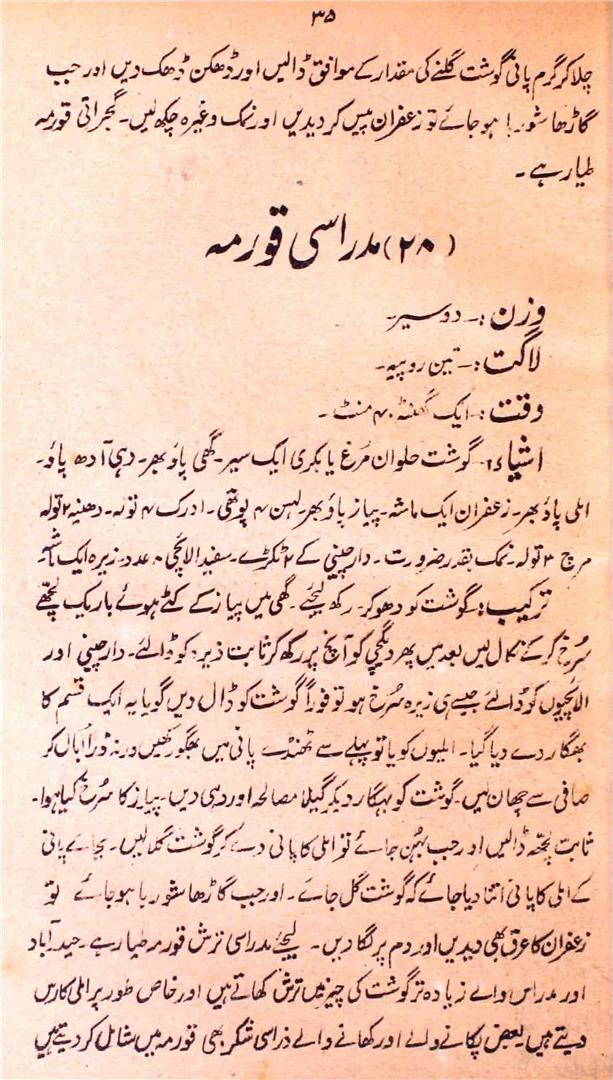 ۳۵
چلا کر گرم پانی گوشت گلنے کی مقدار کے موافق ڈالیں اور ڈھکن ڈھک دیں اور جب
گاڑھا شوربا ہو جائے تو زعفران پیس کر دیدیں اور نمک وغیرہ چکھ لیں۔ گجراتی قورمہ
طیار ہے۔
(۲۸) مدراسی قورمہ
وزن :۔ دو سیر۔
لاگت :۔ تین روپیہ۔
وقت :۔ ایک گھنٹہ ۴۰ منٹ۔
اشیاء :۔ گوشت حلوان مرغ یا بکری ایک سیر۔ گھی پاؤ بھر۔ دہی آدھ پاؤ۔
املی پاؤ بھر۔ زعفران ایک ماشہ۔ پیاز پاؤ بھر۔ لہسن ۴ پوتھی۔ ادرک ۴ تولہ۔ دھنیہ ۲ تولہ
مرچ ۳ تولہ۔ نمک بقدر ضرورت۔ دارچینی کے ۲ ٹکڑے۔ سفید الائچی ۸ عدد۔ زیرہ ایک ماشہ
ترکیب :۔ گوشت کو دھو کر رکھ لیجئے۔ گھی میں پیاز کے کٹے ہوئے باریک لچھے
سرخ کر کے نکال لیں بعد میں پھر دیگچی کو آنچ پر رکھ کر ثابت زیرہ کو ڈالئے۔ دارچینی اور
الائچیوں کو ڈالئے جیسے ہی زیرہ سرخ ہو تو فوراً گوشت کو ڈال دیں گویا یہ ایک قسم کا
بھگار دے دیا گیا۔ املیوں کو یا تو پہلے سے ٹھنڈے پانی میں بھگو رکھیں ورنہ ذرا اُبال کر
صافی سے چھان لیں۔ گوشت کو بھگار دیکر گیلا مصالحہ اور دہی دیں۔ پیاز کا سرخ کیا ہوا۔
ثابت لچھہ ڈالیں اور جب بھُن جائے تو املی کا پانی دے کر گوشت گلا لیں۔ بجائے پانی
کے املی کا پانی اتنا دیا جائے کہ گوشت گل جائے۔ اور جب گاڑھا شوربا ہو جائے تو
زعفران کا عرق بھی دیدیں اور دم پر لگا دیں۔ لیجئے مدراسی ترش قورمہ طیار ہے۔ حیدرآباد
اور مدراس والے زیادہ تر گوشت کی چیزیں ترش کھاتے ہیں اور خاص طور پر املی کا رس
دیتے ہیں بعض پکانے والے اور کھانے والے ذراسی شکر بھی قورمہ میں شامل کر دیتے ہیں